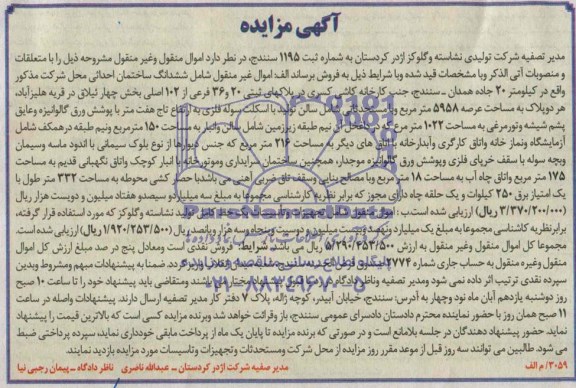 آگهی مزایده
مدیر تصفیه شرکت تولیدی نشاسته وگلوکز اژدر کردستان به شماره ثبت ۱۱۹۵ سنندج، در نظر دارد اموال منقول وغیر منقول مشروحه ذیل را با متعلقات
و منصوبات آتی الذکر وبا مشخصات قید شده وبا شرایط ذیل به فروش برساند الف: اموال غیر منقول شامل ششدانگ ساختمان احداثی محل شرکت مذکور
واقع در کیلومتر ۲۰ جاده همدان - سنندج، جنب کارخانه کاشی کسری در پلاکهای ثبتی ۲۰ و۳۶ فرعی از ۱۰۲ اصلی بخش چهار ثیلاق در قریه هلیزآباد،
هر دوپلاک به مساحت عرصه ۵۹۵۸ متر مربع سالن تولید با اسکلت سوله فلزی به ارتفاع تاج هفت متر با پوشش ورق گالوانیزه وعایق
پشم شیشه وتورمرغی به مساحت ۱۰۲۲ متر نیم طبقه زیرزمین شامل سالن وانبار به مساحت ۱۵۰ مترمربع ونیم طبقه درهمکف شامل
آزمایشگاه ونماز خانه واتاق کارگری وآبدارخانه های دیگر به مساحت ۲۱۶ متر مربع که جنس دیوارها از نوع بلوک سیمانی با اندود ماسه وسیمان
وبچه سوله با سقف خرپای فلزی وپوشش ورق گالوانیزه موجدار، همچنین ساختمان سرایداری وموتورخانه با انبار کوچک واتاق نگهبانی قدیم به مساحت
۱۷۵ متر مربع واتاق چاه آب به مساحت ۱۸ متر مربع وبا مصالح بنایی وسقف طاق ضربی آهنی می باشدبا حصار کشی محوطه به مساحت ۳۳۲ متر طول با
یک امتیاز برق ۲۵۰ کیلوات و یک حلقه چاه دارای مجوز که برابر نظریه کارشناسی مجموعا به مبلغ سه میلیارد و سیصدو هفتاد میلیون و دویست هزار ریال
(۳/۳۷۰/۲۰۰/۰۰۰ ریال) ارزیابی شده است ب: خط کامل تولید نشاسته وگلوکز که مورد استفاده قرار گرفته،
برابر نظریه کارشناسی مجموعا به مبلغ یک میلیارد و نهصد وبیست میلیون و دویست و پنجاه وسه هزار وپانصد ریال (۱/۹۲۰/۲۵۳/۵۰۰ ریال) ارزیابی شده است.
مجموعا کل اموال منقول وغیر منقول به ارزش ۵/۲۹۰/۲۵۳/۵۰۰ ریال می باشد شرایط: فروش نقدی است ومعادل پنج در صد مبلغ ارزش کل اموال
منقول وغیره منقول به حساب جاری شماره ۲۷۷۴ گردد. ضمنا به پیشنهادات مبهم ومشروط وبدین
سپرده نقدی ترتیب اثر داده نمی شود ومدیر تصفیه وناظر دادگاه ومتقاضی باید پیشنهاد خود را تا ساعت ۱۰ صبح
روز دوشنبه یازدهم آبان ماه نود وچهار به آدرس: سنندج، خیابان آبیدر، کوچه ژاله، پلاک ۷ دفتر کار مدیر تصفیه ارسال دارند. پیشنهادات واصله در ساعت
۱۱ صبح همان روز با حضور نماینده محترم دادستان دادسرای عمومی سنندج، باز وقرائت خواهد شد وبرنده مزایده کسی است که بالاترین قیمت را پیشنهاد
نماید، حضور پیشنهاد دهندگان در جلسه بلامانع است و در صورتی که برنده مزایده تا پایان یک ماه از پرداخت مابقی خودداری نماید، سپرده پرداختی ضبط
می شود. طالبین می توانند سه روز قبل از موعد مقرر روز مزایده از محل شرکت ومستحدثات و تجهیزات وتاسیسات مورد مزایده بازدید نمایند.
۳۰۵۹/ م الف مدیر صفیه شرکت اژدر کردستان - عبدالله ناصری ناظر دادگاه - پیمان رجبی نیا
پایگاه اطلاع رسانی مناقصه ومزایده
۰۲۱-۸۸۳۴۹۶۷۰-۵